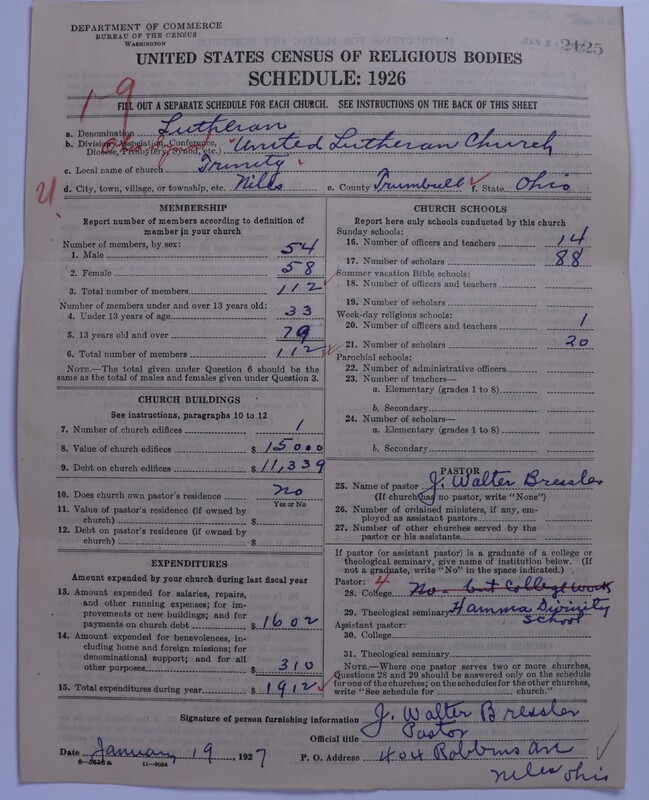 DEPARTMENT OF COMMERCE
BUREAU OF THE CENSUS
WASHINGTON
JAN 21
2125
UNITED STATES CENSUS OF RELIGIOUS BODIES
SCHEDULE: 1926
1-9
FILL OUT A SEPARATE SCHEDULE FOR EACH CHURCH. SEE INSTRUCTIONS ON THE BACK OF THIS SHEET
a. Denomination Lutheran
b. Division (Association, Conference, Diocese, Presbytery, Synod, etc.) Ohio Synod United Lutheran Church
c. Local name of church Trinity
d. City, town, village, or township, etc. Niles e. County Trumbull f. State Ohio
MEMBERSHIP
Report number of members according to definition of
member in your church
Number of members, by sex:
1. Male 54
2. Female 58
3. Total number of members 112
Number of members under and over 13 years old:
4. Under 13 years of age 33
5. 13 years old and over 79
6. Total number of members 112
NOTE.—The total given under Question 6 should be
same as the total of males and females given under Question 3.
CHURCH BUILDINGS
See instructions, paragraphs 10 to 12
7. Number of church edifices 1
8. Value of church edifices $15000
9. Debt on church edifices $11,339
10. Does church own pastor's residence no
Yes or No
11. Value of pastor's residence (if owned by
church) $
12. Debt on pastor's residence (if owned by
church) $
EXPENDITURES
Amount expended by your church during last fiscal year
13. Amount expended for salaries, repairs,
and other running expenses; for im-
provements or new buildings; and for
payments on church debt $1602
14. Amount expended for benevolences, in-
cluding home and foreign missions; for
denominational support; and for all
other purposes $310
15. Total expenditures during year $1912
CHURCH SCHOOLS
Report here only schools conducted by this church
Sunday schools:
16. Number of officers and teachers 14
17. Number of scholars 88
Summer vacation Bible schools:
18. Number of officers and teachers
19. Number of scholars
Week-day religious schools:
20. Number of officers and teachers 1
21. Number of scholars 20
Parochial schools:
22. Number of administrative officers
23. Number of teachers—
a. Elementary (grades 1 to 8)
b. Secondary
24. Number of scholars—
a. Elementary (grades 1 to 8)
b. Secondary
PASTOR
25. Name of pastor J. Walter Bressler
(If church has no pastor, write "None")
26. Number of ordained ministers, if any, em-
ployed as assistant pastors
27. Number of other churches served by the
pastor or his assistants
If pastor (or assistant pastor) is a graduate of a college or
theological seminary, give name of institution below. (If
not a graduate, write "No" in the space indicated.)
Pastor: 4
28. College No - but College work
29. Theological seminary Hamma Divinity
School
Assistant pastor:
30. College
31. Theological seminary
NOTE.—Where one pastor serves two or more churches,
Questions 28 and 29 should be answered only on the schedule
for one of the churches; on the schedules for the other churches,
write "See schedule for church."
Signature of person furnishing information J. Walter Bressler
Official title Pastor
Date January 19, 1927 P. O. Address 404 Robbins Ave
8-3516a 11-9034
Niles Ohio